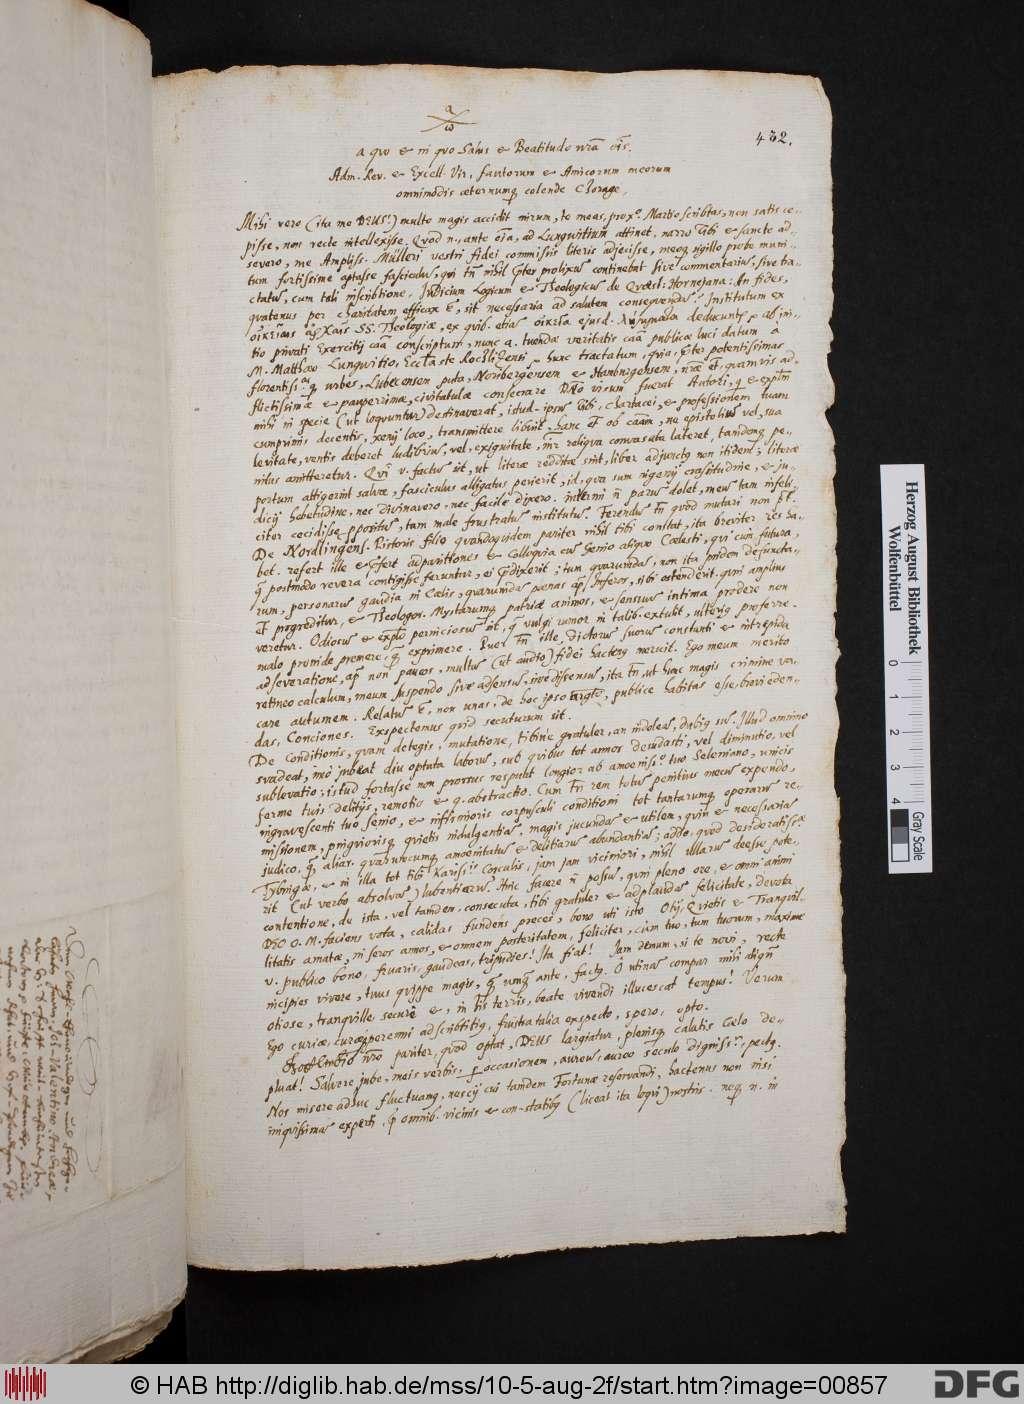 432.
α
ω
a quo et in quo Salus et Beatitudo nra ois.
Adm. Rev. et Excell. Vir, fautorum et Amicorum meorum
omnimodis aeternumq colende Chorage,
Mihi vero (ita me DEUS!) multo magis accidit mirum, te meas, prox. Martio scribtas, non satis ce-
pisse, non recte intellexisse. Quod n., ante oia, ad Lungwitium attinet, narro Tibi et sancte ad-
severo, me Ampliss. Mülleri vestri fidei commissis literis adjecisse, meoq sigillo probe muni-
tum fortissime aptasse fasciculum, qui tn nihil pter prolixus continebat sive commentarius, sive tra-
ctatus, cum tali inscribtione, Judicium Logicum et Theologicum de Quaest: Hornejana: An fides,
quatenus per charitatem efficax e, sit necessaria ad salutem consequendam? Institutum ex
SS. Theologiae, ex quib. etiam ejusd. deducuntr ab ini-
tio privati Exercitij caa conscriptum, nunc a. tuendae veritatis caa publicae luci datum a
M. Matthaeo Lungwitio, Eccl. Rochlizensi hunc tractatum, quia, pter potentissimas
florentiss. urbes, Lubecensem puta, Noribergensem et Hamburgensem, nrae et, quamvis ad-
flictissimae et pauperrimae, civitatulae consecrare Dno visum fuerat Autori, et
mihi in specie (ut loquuntur) destinaverat, istud ipsum tibi, Chartacei, et professionem tuam
cumprimis decentis, xenij loco, transmittere libuit. hanc et ob caam, ne epistolium vel, sua
levitate, ventis deberet ludibrium, vel, exiguitate, inter reliqua convasata lateret, tandemq pe-
nitus amitteretur. Qui v. factum sit, ut literae redditae sint, liber adjunctq non itidem; literae
portum attigerint salvae, fasciculus alligatus perierit, id, qua sum ingenij crassitudine, et ju-
dicij hebetudine, nec divinavero, nec facile dixero. interim n parum dolet, meum tam infeli-
citer cecidisse ppositum, tam male frustratum institutum. Ferendum tn quod mutari non pt.
De Nordlingens. Pistoris filio quandoquidem pariter nihil tibi constat, ita breviter res ha-
bet. refert ille et pfert adparitiones et Colloquia cum Genio aliquo Coelesti, qui cum futura,
q postmodo revera contigisse feruntur, ei pdixerit; tum quarundam, non ita pridem defuncta-
rum, personarum gaudia in Coelis, quarundam poenas ap. Inferos, sibi ostenderit. quin amplius
et progreditur, et Theologor. Mystarumq patriae animos, et sensuum intima prodere non
veretur. Odiosum et expl. perniciosum sit, q vulgi rumor in talib. extulit, ulterius proferre.
malo proinde premere, q exprimere. Puer tn ille, dictorum suorum constanti et intrepida
adseveratione, ap. non paucos, multum (ut audio) fidei hactenq meruit. Ego meum merito
retineo calculum, meum suspendo sive adsensum, sive dissensum, ita tn, ut hinc magis crimine va-
care autumem. Relatum e, non unas, de hoc ipso argto, publice habitas esse, brevi eden-
das, Conciones. Exspectemus quid secuturum sit.
De Conditionis, quam detegis, mutatione, tibine gratuler, an indoleam, dubiq sum. Illud omnino
svadeat, imo jubeat diu optata laborum, sub quibus tot annos desudasti, vel diminutio, vel
sublevatio; istud fortasse non prorsus respuat longior ab amoeniss. tuo Seleniano, unicis
ferme tuis delitijs, remotio et q. abstractio. Cum tn rem totam penitius mecum expendo,
ingravescenti tuo senio, et infirmioris corpusculi conditioni tot tantarumq operarum re-
missionem, pinguiorisq quietis indulgentiam, magis jucundam et utilem, quin et necessariam
judico, q aliar. quarumcumq amoenitatum et delitiarum abundantiam; addo, quod desideratissae
Tybingae, et in illa tot tibi Kariss. Corculis, jam jam vicinior, nihil illarum deesse pote-
rit (ut verbo absolvam) lubentiarum. Hinc facere n possum, quin pleno ore, et omni animi
contentione, de ista, vel tandem, consecuta, tibi gratuler et adplaudam felicitate, devota
DEO O. M. faciens vota, calidas fundens preces, bono uti isto Otij, Quietis et Tranquil-
litatis amatae, in seros annos, et omnem posteritatem, feliciter, cum tuo, tum tuorum, maxime
v. publico bono, fruaris, gaudeas, tripudies! Ita fiat! Jam demum, si te novi, recte
incipies vivere, tuus quippe magis, q umq ante, factq. O utinam compar mihi dign
otiose, tranquille, secure et, in his terris, beate vivendi illucescat tempus! Verum
Ego curiae, curaeq perenni adscribtitiq, frustra talia exspecto, spero, opto.
nro pariter, quod optat, DEUS largiatur, plenisq calatis Coelo de-
pluat! Salvere jube, meis verbis, p occasionem, aureum, aureo seculo digniss. pectq.
Nos misere adhuc fluctuamq, nescij cui tandem Fortunae reservandi, hactenus non nisi
iniquissimam experti, q omnib. vicinis et con-statibq (liceat ita loqui) nostris. neq. n. in
Herzog August Bibliothek
Wolfenbüttel
0 1 2 3 4
Gray Scale
© HAB http://diglib.hab.de/mss/10-5-aug-2f/start.htm?image=00857
DFG